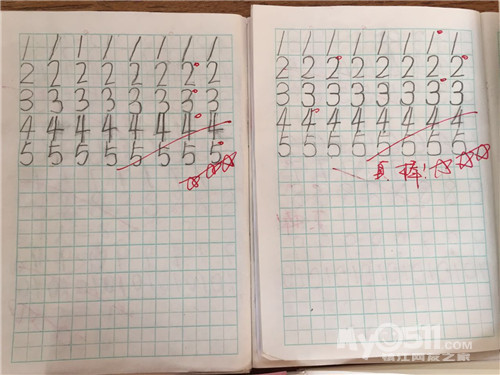 1 1 1 1 1 1 1 1
2 2 2 2 2 2 2 2
3 3 3 3 3 3 3 3
4 4 4 4 4 4 4 4
5 5 5 5 5 5 5 5
1 1 1 1 1 1 1 1
2 2 2 2 2 2 2 2
3 3 3 3 3 3 3 3
4 4 4 4 4 4 4 4
5 5 5 5 5 5 5 5
真棒!
My0511.COM
镇江网友之家